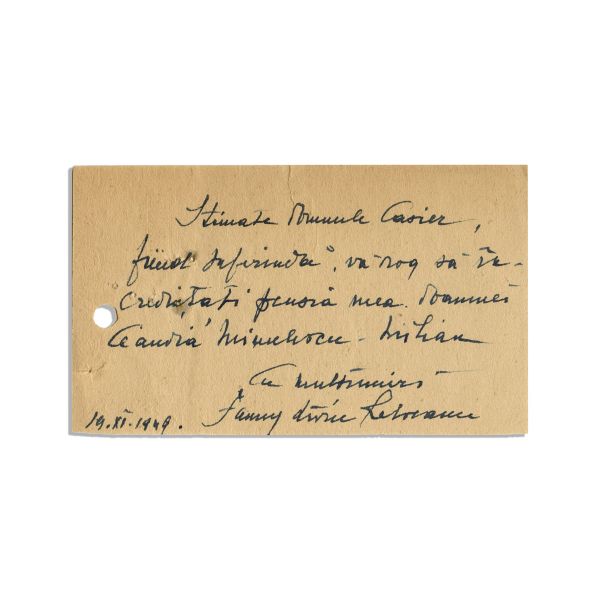 Stimate Domnule Casier,
fiind suferindă, vă rog să în-
credințați pensia mea Doamnei
Claudia Minulescu - Milian
Cu mulțumiri
Fanny
19.XI.1949.